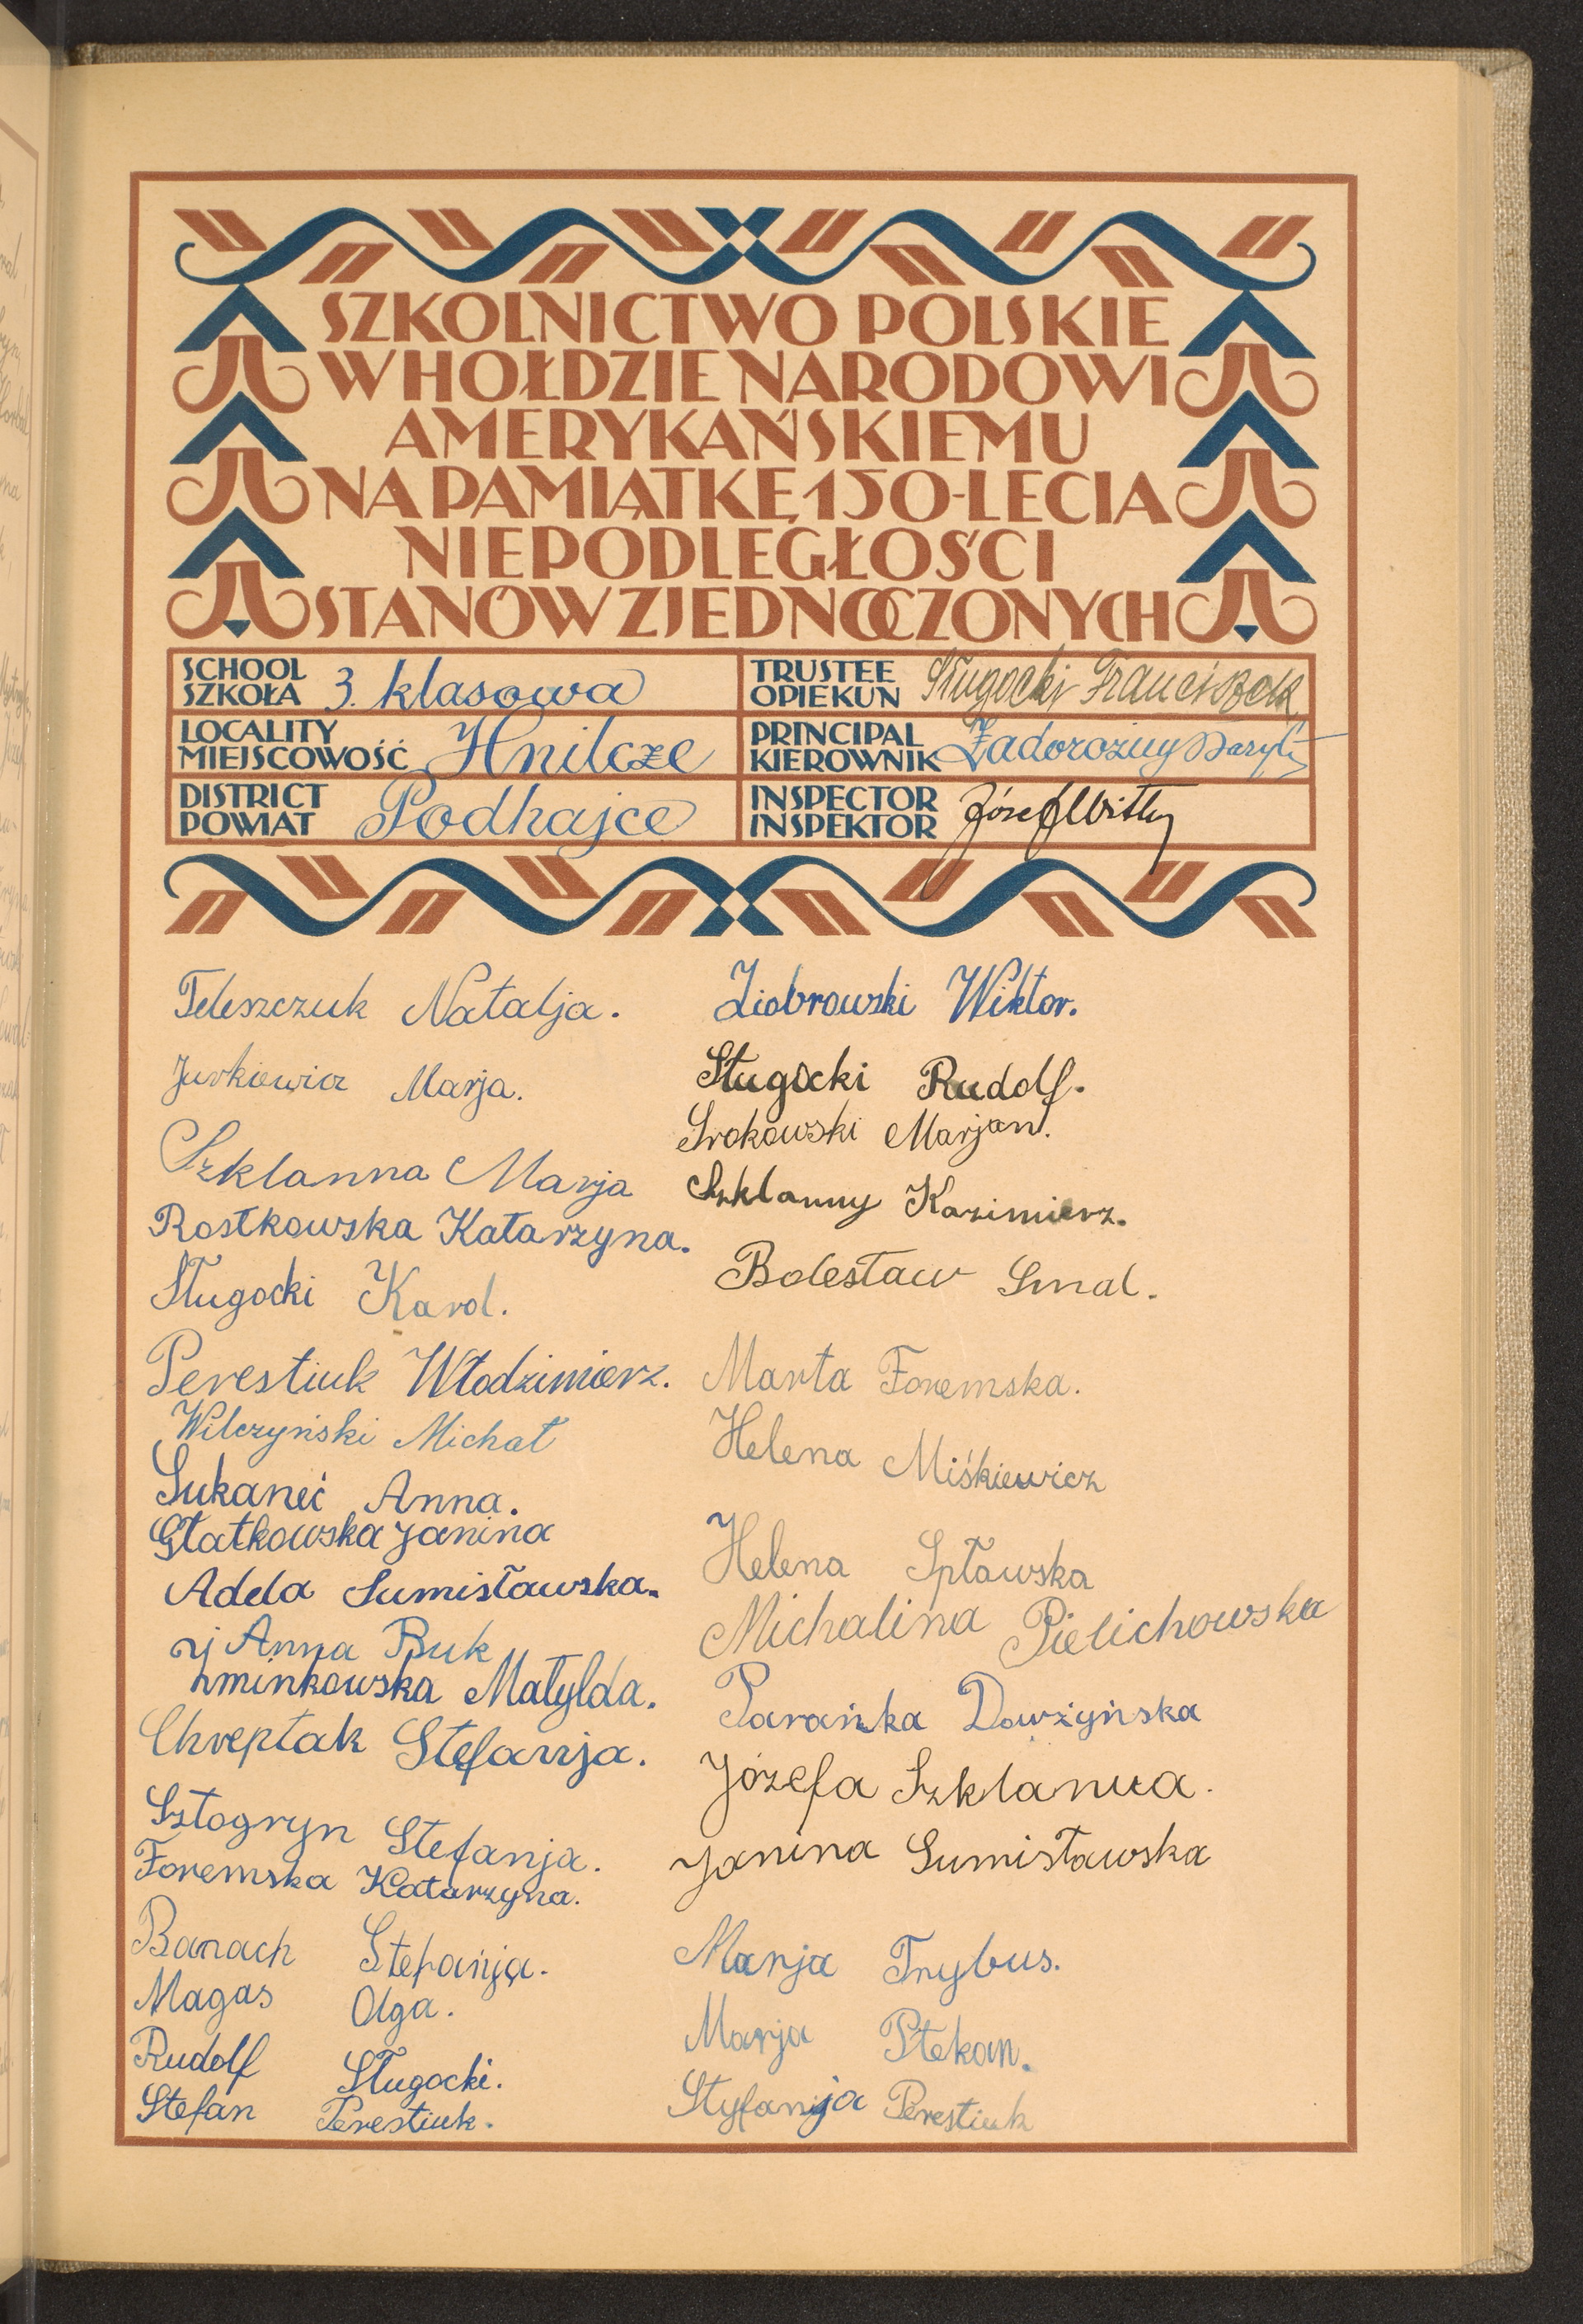 SZKOLNICTWO POLSKIE
W HOŁDZIE NARODOWI
AMERYKAŃSKIEMU
NA PAMIĄTKĘ 150-LECIA
NIEPODLEGŁOŚCI
STANÓW ZJEDNOCZONYCH
SCHOOL
SZKOŁA 3. klasowa
TRUSTEE
OPIEKUN Sługocki Franciszek
LOCALITY
MIEJSCOWOŚĆ Hnilcze
PRINCIPAL
KIEROWNIK Zadorożny Bazyli
DISTRICT
POWIAT Podhajce
INSPECTOR
INSPEKTOR Józef Wittly
Teleszczuk Natalja.
Jurkiewicz Marja.
Szklanna Marja
Rostkowska Katarzyna.
Sługocki Karol.
Perestiuk Włodzimierz.
Wilczyński Michał
Sukaneć Anna.
Głatkowska Janina
Adela Sumisławska.
Anna Buk
Żminkowska Matylda.
Chreptak Stefanja.
Sztogryn Stefanja.
Foremska Katarzyna.
Banach Stefanja.
Magas Olga.
Rudolf Sługocki.
Stefan Perestiuk.
Ziobrowski Wiktor.
Sługocki Rudolf.
Srokowski Marjan.
Szklanny Kazimierz.
Bolesław Smal.
Marta Foremska.
Helena Miśkiewicz
Helena Spławska
Michalina Pielichowska
Parańka Dowżyńska
Józefa Szklanna.
Janina Sumisławska
Marja Trybus.
Marja Ptekan.
Styfanija Perestiuk